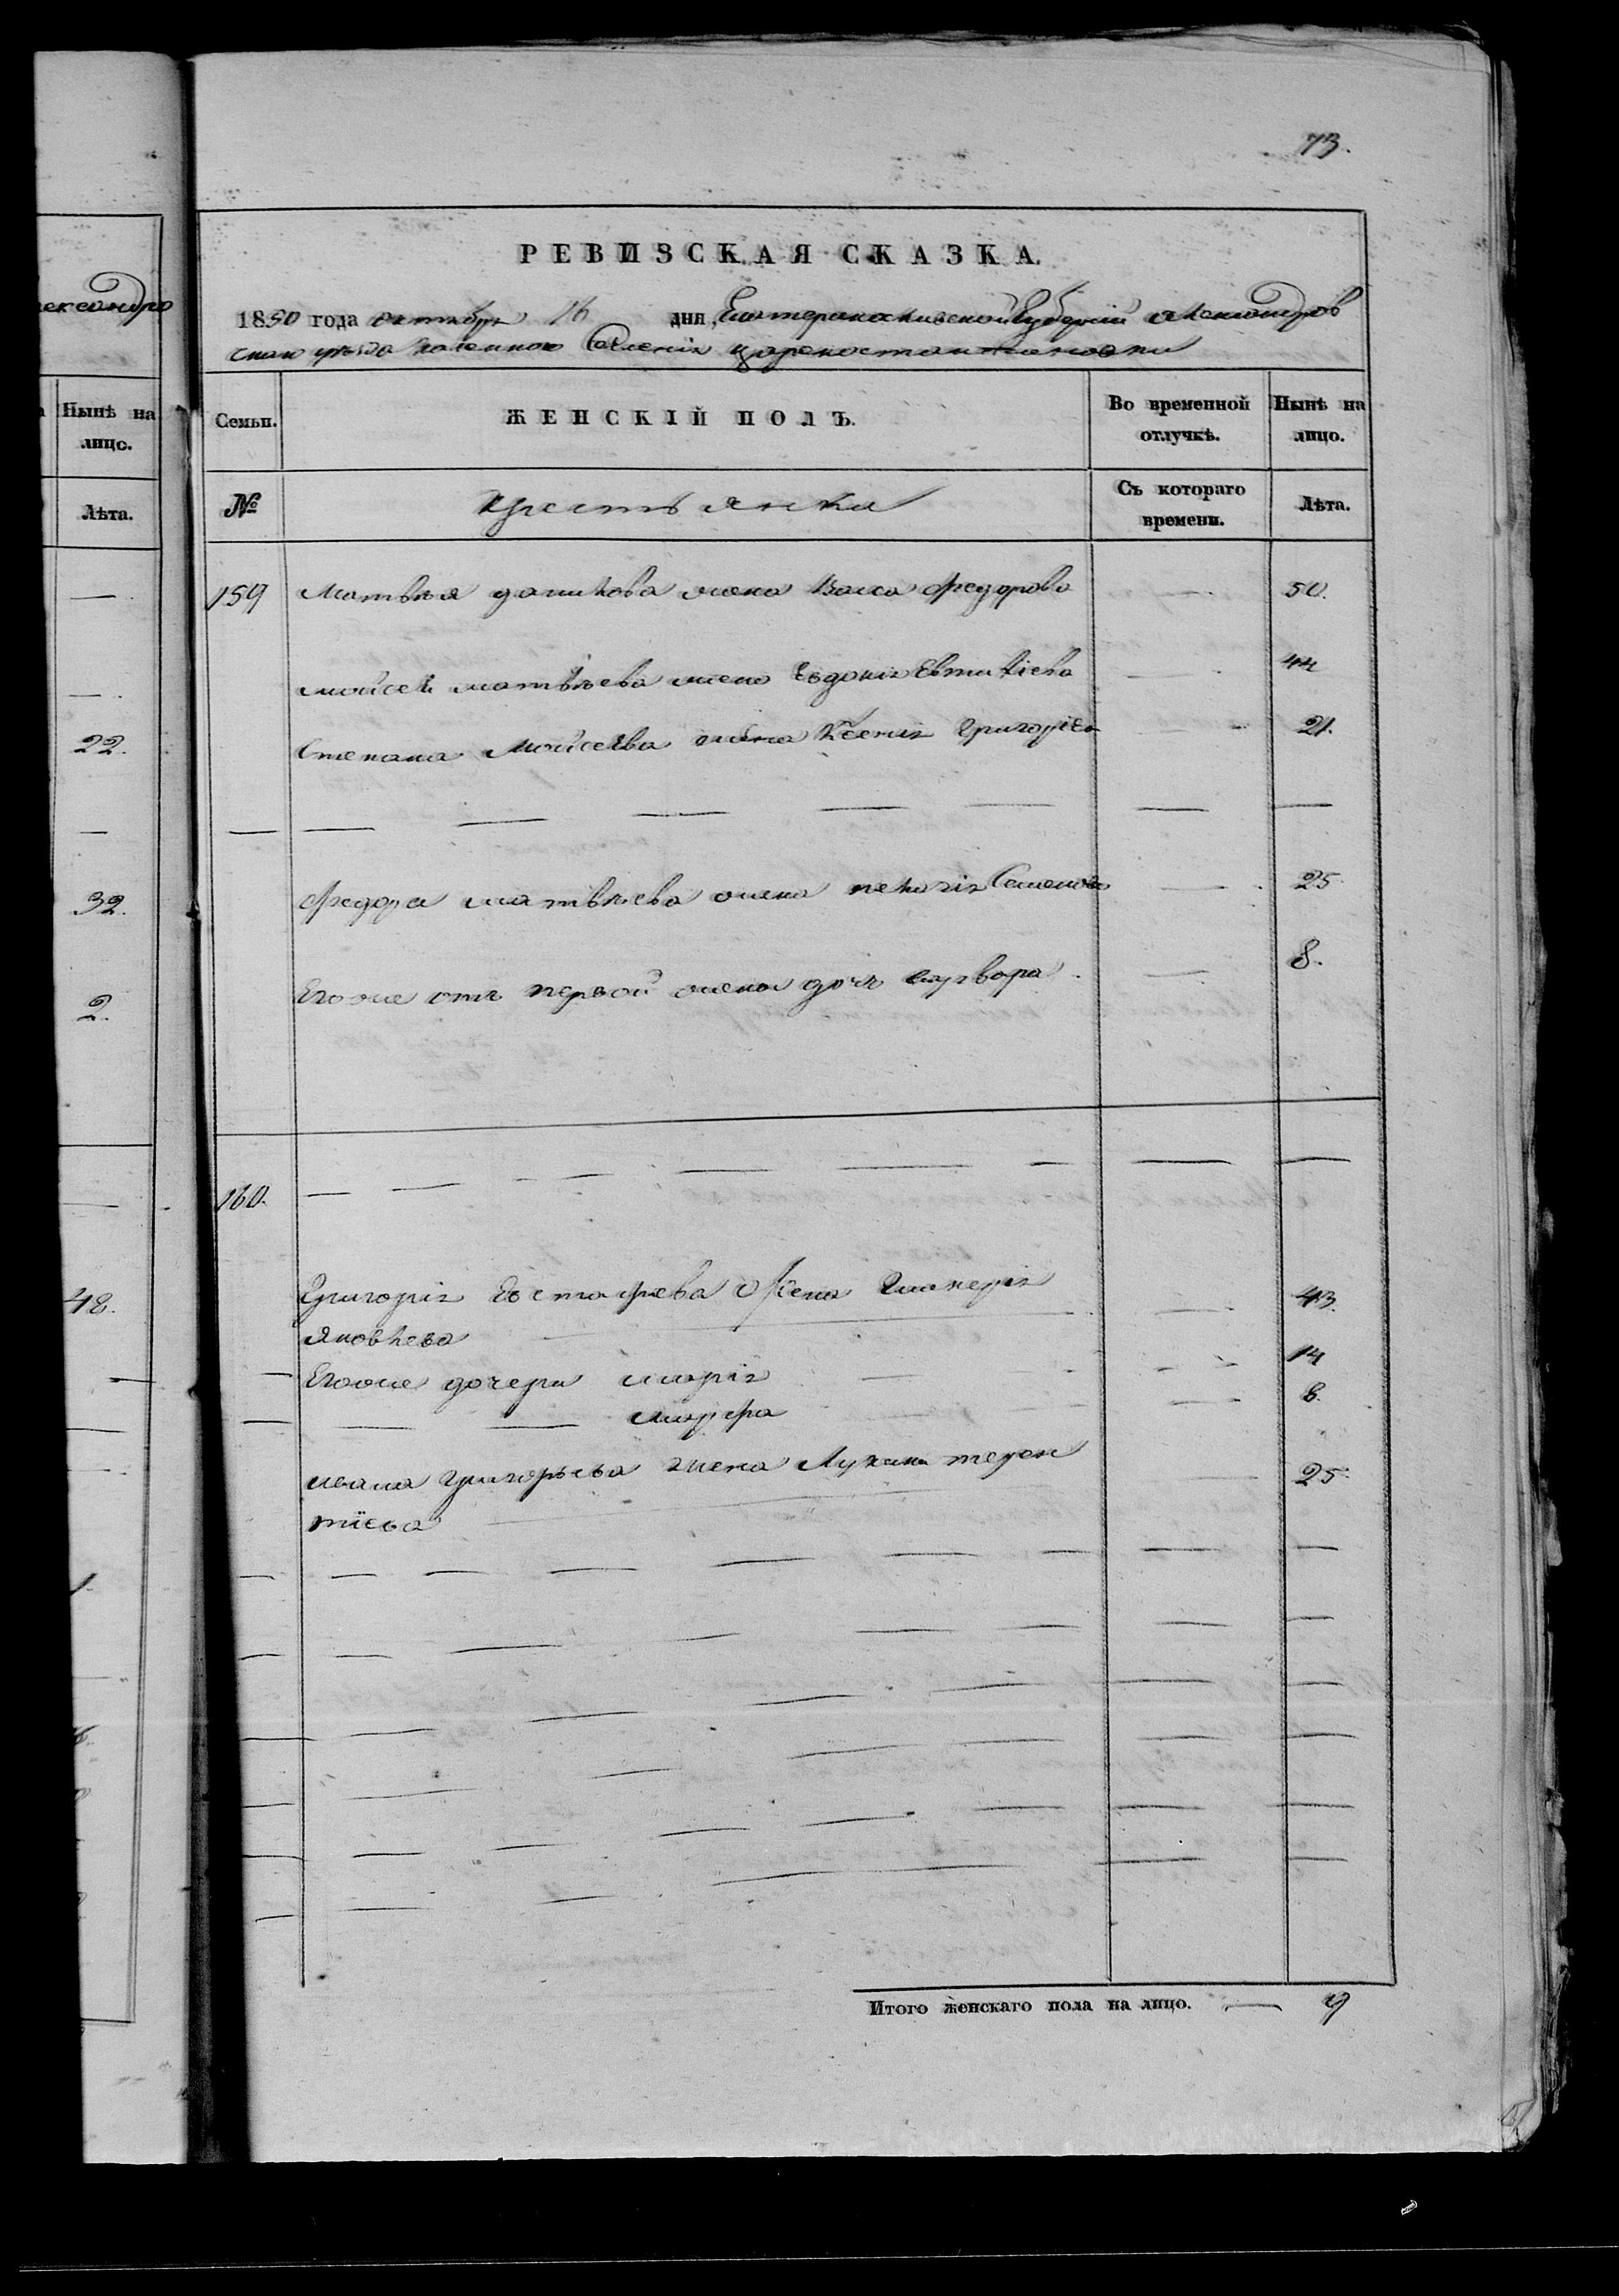 73.
РЕВИЗСКАЯ СКАЗКА.
1850 года октября 16 дня, Екатеринославской Губерній Александров
скаго уѣзда казенного Селенія Цареконстантиновки
ександро
Нынѣ на лицо.
Лѣта.
22.
32.
2.
48.
Семьи.
ЖЕНСКІЙ ПОЛЪ.
Во временной отлучкѣ.
Нынѣ на лицо.
№
Крестьянка
Съ котораго времени.
Лѣта.
159 Матвѣя данилова жена Васса Федорова 50.
мойсея матвѣева жена Евдокія Евтихіева 44
Степана Мойсеева жена Ксенія Григоріева 21.
Федора матвѣева жена пелагія Семенова 25
Егоже отъ первой жены дочь варвара 8.
160.
Григорія Евстафьева Жена Гликерія
Яковлева 43.
Егоже дочери марія 14
марфа 8.
ивана григорьева жена Лукия терен
тіева 25.
Итого женскаго пола на лицо. 9